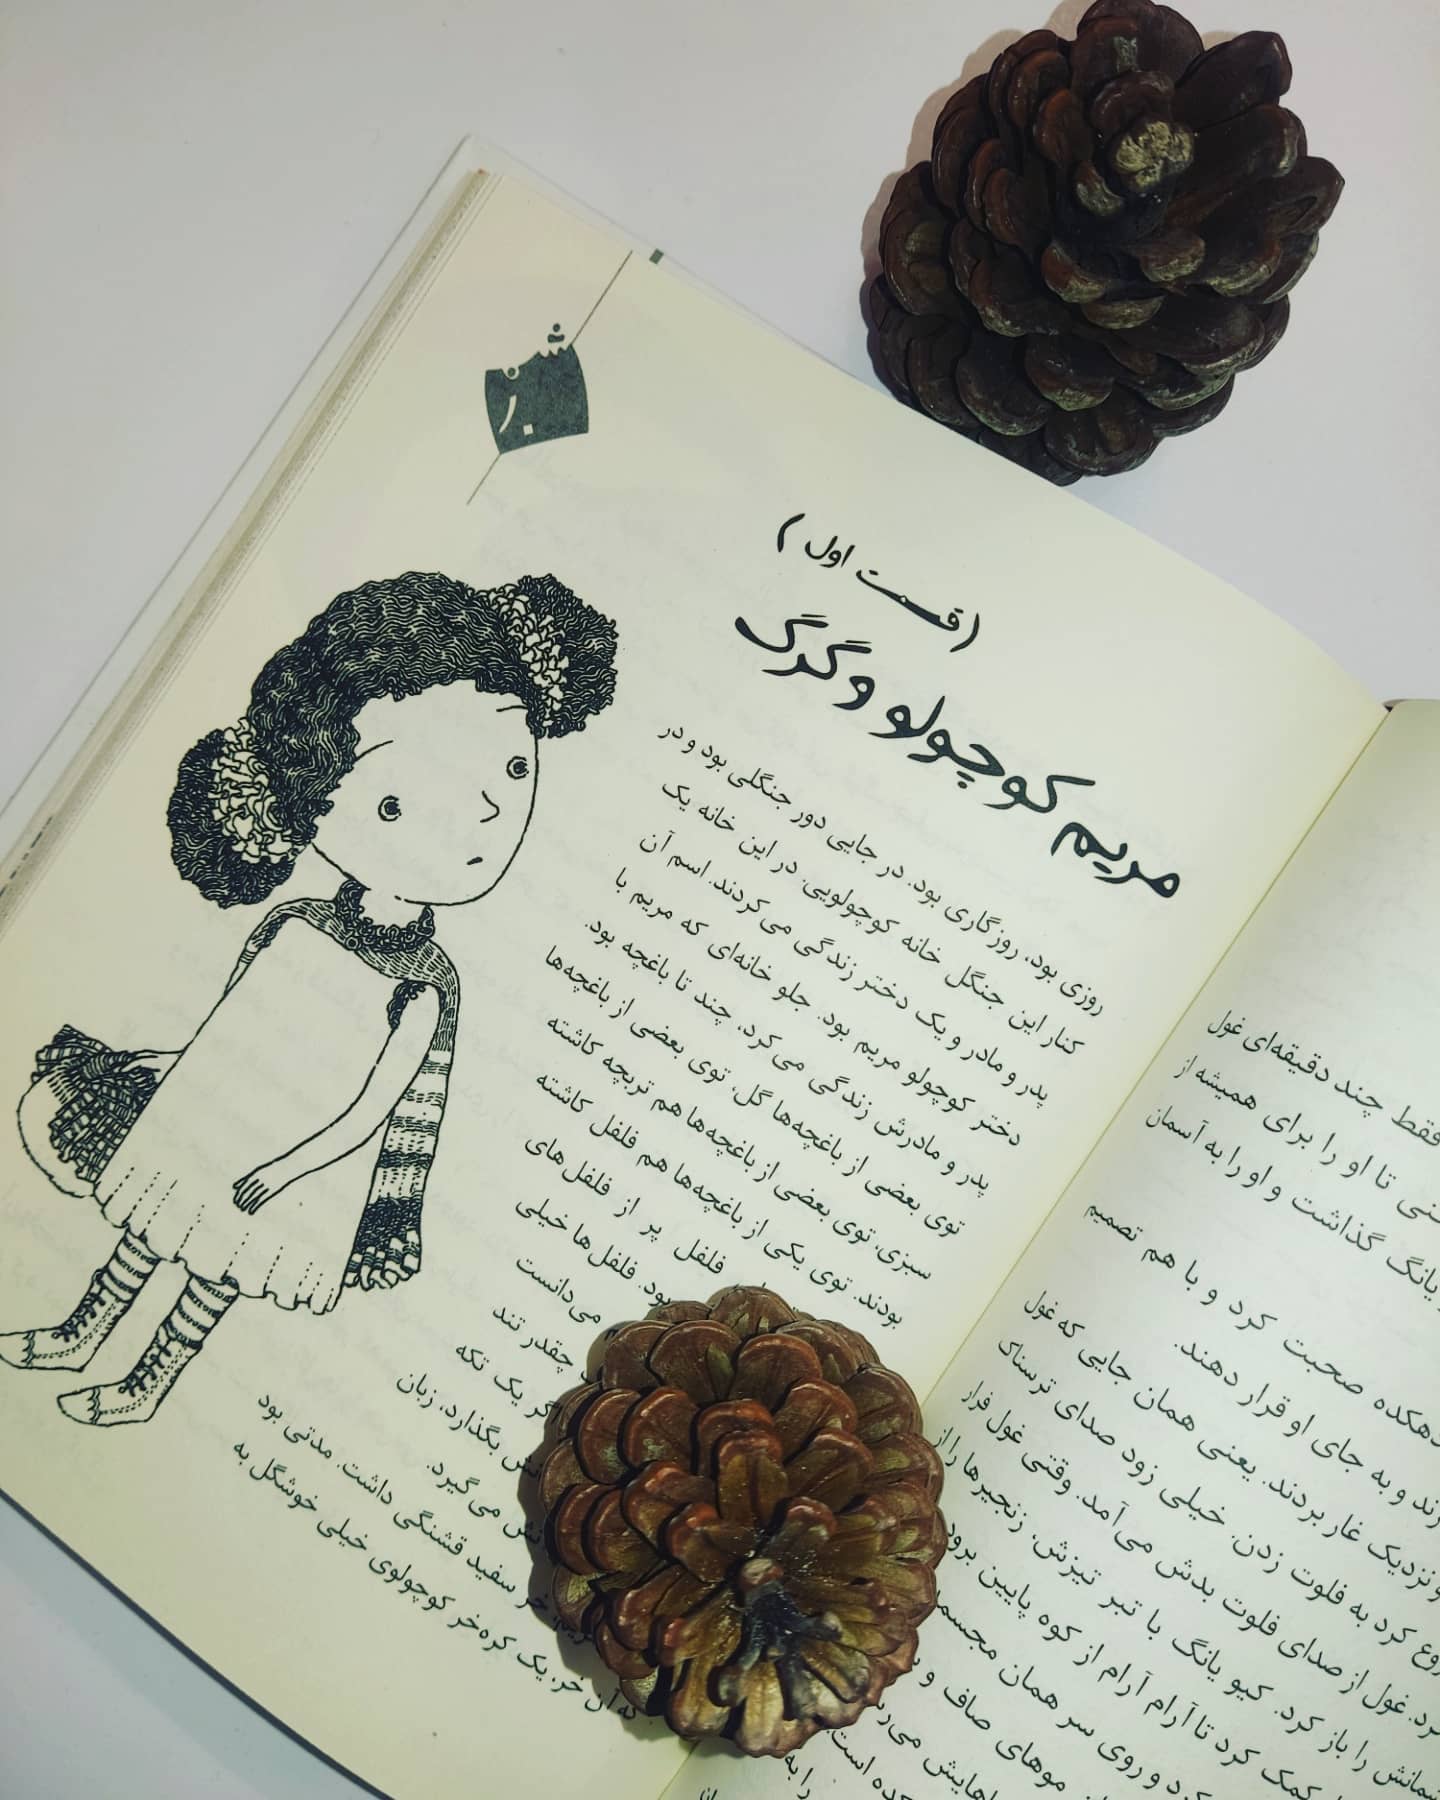 (قسمت اول)
مریم کوچولو و گرگ
روزی بود، روزگاری بود. در جایی دور جنگلی بود و در
کنار این جنگل خانه کوچولویی. در این خانه یک
پدر و مادر و یک دختر زندگی می‌کردند. اسم آن
دختر کوچولو مریم بود. جلو خانه‌ای که مریم با
پدر و مادرش زندگی می‌کرد، چند تا باغچه بود.
توی بعضی از باغچه‌ها گل، توی بعضی از باغچه‌ها
سبزی، توی بعضی از باغچه‌ها هم تربچه کاشته
بودند. توی یکی از باغچه‌ها هم فلفل کاشته
فلفل پر از فلفل‌های
بود. فلفل‌ها خیلی
می‌دانست
چقدر تند
یک تکه
بگذارد، زبان
می‌گیرد.
خر سفید قشنگی داشت. مدتی بود
که آن خر، یک کره‌خر کوچولوی خیلی خوشگل به
فقط چند دقیقه‌ای غول
تا او را برای همیشه از
یانگ گذاشت و او را به آسمان
دهکده صحبت کرد و با هم تصمیم
و به جای او قرار دهند.
نزدیک غار بردند. یعنی همان جایی که غول
کرد به فلوت زدن. خیلی زود صدای ترسناک
غول از صدای فلوت بدش می‌آمد. وقتی غول فرار
را باز کرد. کیو یانگ با تبر تیزش، زنجیرها را از
کمک کرد تا آرام آرام از کوه پایین برود
و روی سر همان
موهای صاف و
است.
را به